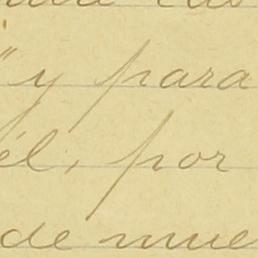 " y para
él, por
de mue